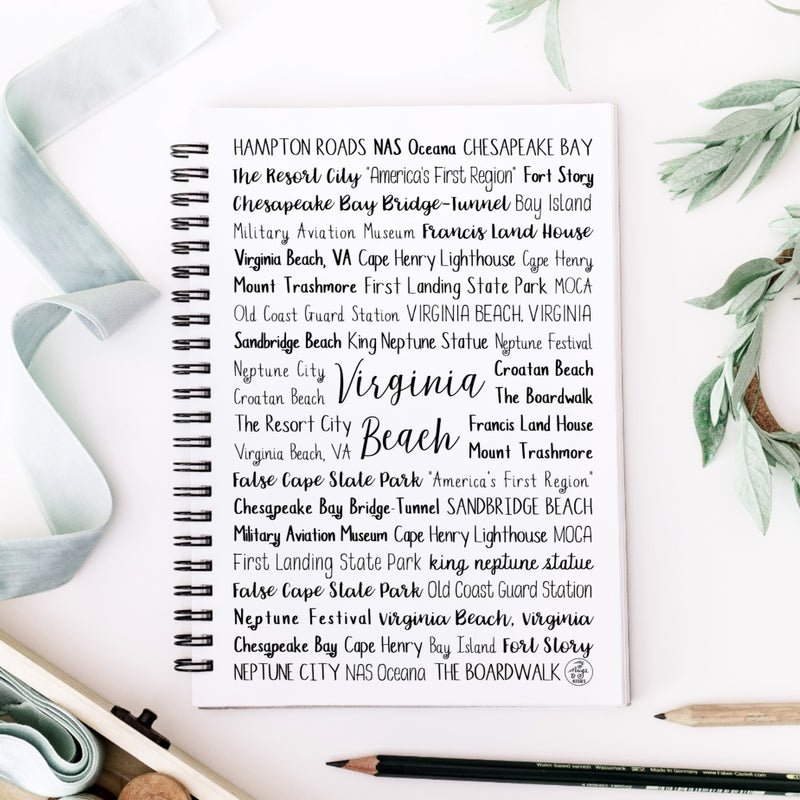 HAMPTON ROADS NAS Oceana CHESAPEAKE BAY
The Resort City "America's First Region" Fort Story
Chesapeake Bay Bridge-Tunnel Bay Island
Military Aviation Museum Francis Land House
Virginia Beach, VA Cape Henry Lighthouse Cape Henry
Mount Trashmore First Landing State Park MOCA
Old Coast Guard Station VIRGINIA BEACH, VIRGINIA
Sandbridge Beach King Neptune Statue Neptune Festival
Neptune City Croatan Beach
Virginia
Croatan Beach The Boardwalk
The Resort City Francis Land House
Beach
Virginia Beach, VA Mount Trashmore
False Cape State Park "America's First Region"
Chesapeake Bay Bridge-Tunnel SANDBRIDGE BEACH
Military Aviation Museum Cape Henry Lighthouse MOCA
First Landing State Park king neptune statue
False Cape State Park Old Coast Guard Station
Neptune Festival Virginia Beach, Virginia
Chesapeake Bay Cape Henry Bay Island Fort Story
NEPTUNE CITY NAS Oceana THE BOARDWALK
Made in Germany www.Faber-Castell.com